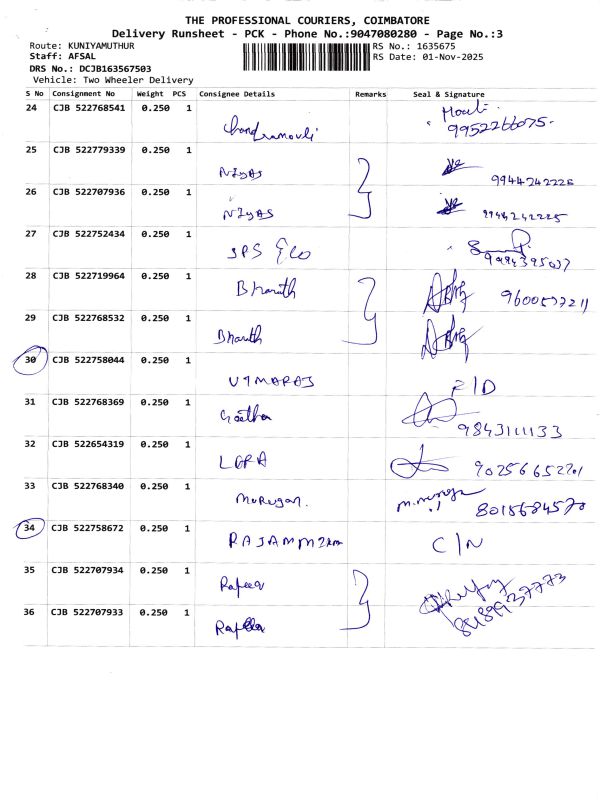 THE PROFESSIONAL COURIERS, COIMBATORE
Delivery Runsheet - PCK - Phone No.:9047080280 - Page No.:3
Route: KUNIYAMUTHUR
RS No.: 1635675
Staff: AFSAL
RS Date: 01-Nov-2025
DRS No.: DCJB163567503
Vehicle: Two Wheeler Delivery
S No Consignment No Weight PCS Consignee Details Remarks Seal & Signature
24 CJB 522768541 0.250 1
Chandramouli 9952266075
25 CJB 522779339 0.250 1
NIYAS 9944242226
26 CJB 522707936 0.250 1
NIYAS 9944242225
27 CJB 522752434 0.250 1
SPS & Co
28 CJB 522719964 0.250 1
Bharath
29 CJB 522768532 0.250 1
Bharath
30 CJB 522758044 0.250 1
31 CJB 522768369 0.250 1
Geetha 9843111133
32 CJB 522654319 0.250 1
33 CJB 522768340 0.250 1
Murugan.
34 CJB 522758672 0.250 1
C/N
35 CJB 522707934 0.250 1
36 CJB 522707933 0.250 1